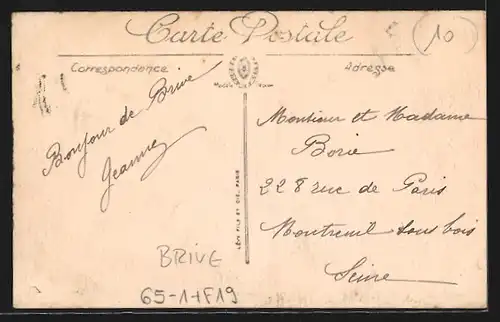 Carte Postale
10
Correspondance
Adresse
Bonjour de Brive
Jeanne
Monsieur et Madame
Borie
228 rue de Paris
Montreuil sous bois
Seine
LÉVY FILS ET CIE, PARIS
BRIVE
65-1+F19